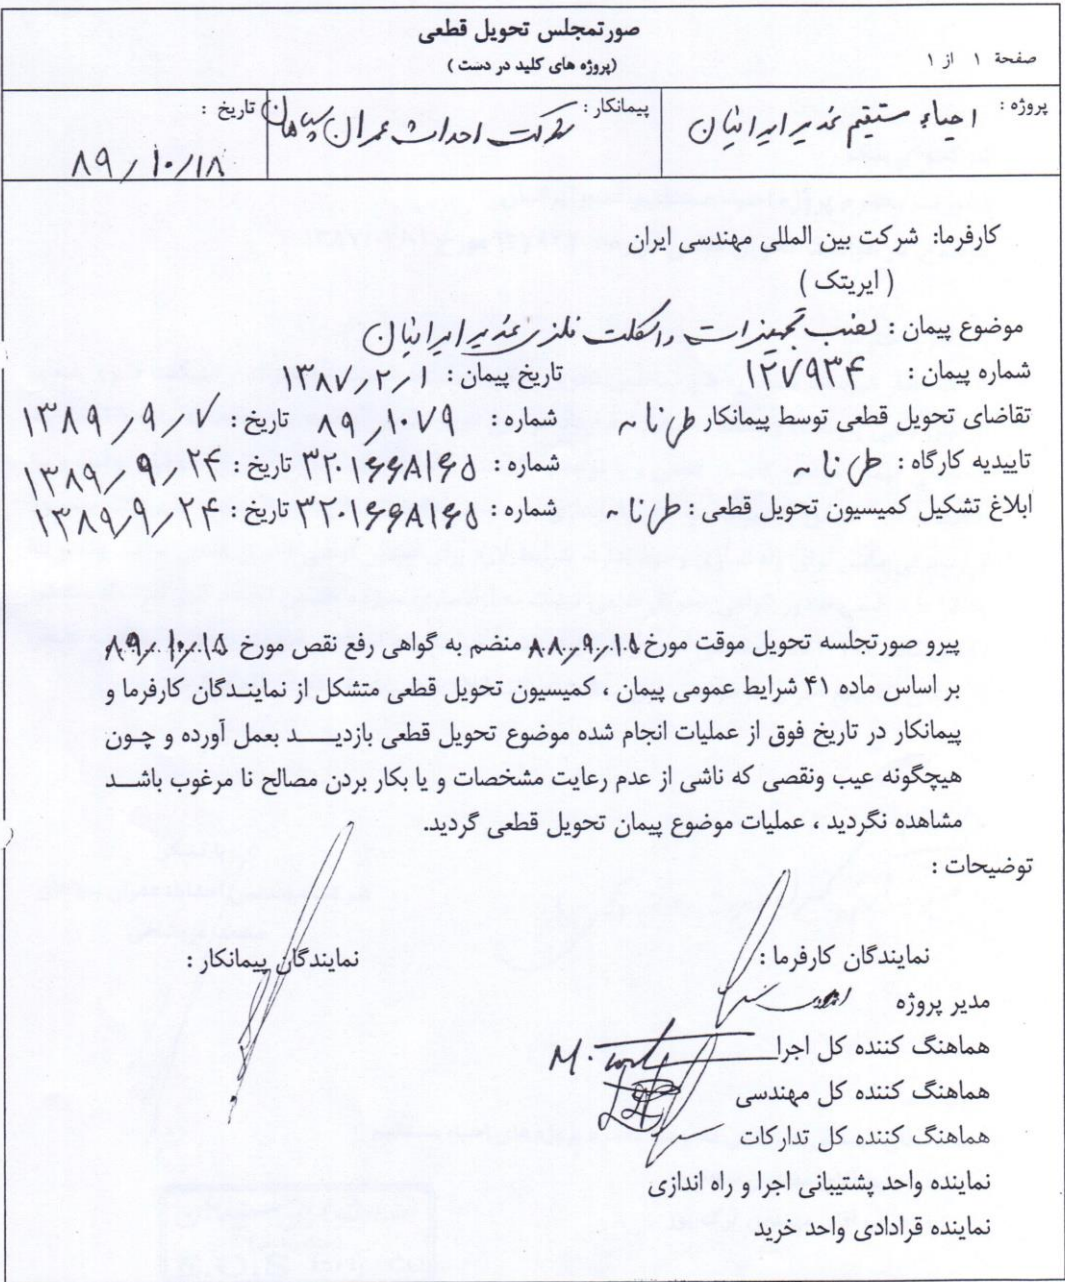 صورتمجلس تحویل قطعی
(پروژه های کلید در دست )
صفحة ۱ از ۱
پروژه : احیاء مستقیم غدیر ایرانیان
پیمانکار : شرکت احداث عمران سپاهان
تاریخ : ۸۹/۱۰/۱۸
کارفرما: شرکت بین المللی مهندسی ایران
( ایریتک )
موضوع پیمان : نصب تجهیزات و اسکلت فلزی غدیر ایرانیان
شماره پیمان : ۱۲۷۹۳۴ تاریخ پیمان : ۱۳۸۷/۲/۱
تقاضای تحویل قطعی توسط پیمانکار طی نامه شماره : ۸۹/۱۰۷۹ تاریخ : ۱۳۸۹/۹/۷
تاییدیه کارگاه : طی نامه شماره : ۳۲۰۱۶۶۸۱۶۵ تاریخ : ۱۳۸۹/۹/۲۴
ابلاغ تشکیل کمیسیون تحویل قطعی : طی نامه شماره : ۳۲۰۱۶۶۸۱۶۵ تاریخ : ۱۳۸۹/۹/۲۴
پیرو صورتجلسه تحویل موقت مورخ ۸۸/۹/۱۵ منضم به گواهی رفع نقص مورخ ۸۹/۱۰/۱۵
بر اساس ماده ۴۱ شرایط عمومی پیمان ، کمیسیون تحویل قطعی متشکل از نمایندگان کارفرما و
پیمانکار در تاریخ فوق از عملیات انجام شده موضوع تحویل قطعی بازدید بعمل آورده و چون
هیچگونه عیب ونقصی که ناشی از عدم رعایت مشخصات و یا بکار بردن مصالح نا مرغوب باشد
مشاهده نگردید ، عملیات موضوع پیمان تحویل قطعی گردید.
توضیحات :
نمایندگان کارفرما :
نمایندگان پیمانکار :
مدیر پروژه
هماهنگ کننده کل اجرا
هماهنگ کننده کل مهندسی
هماهنگ کننده کل تدارکات
نماینده واحد پشتیبانی اجرا و راه اندازی
نماینده قرادادی واحد خرید